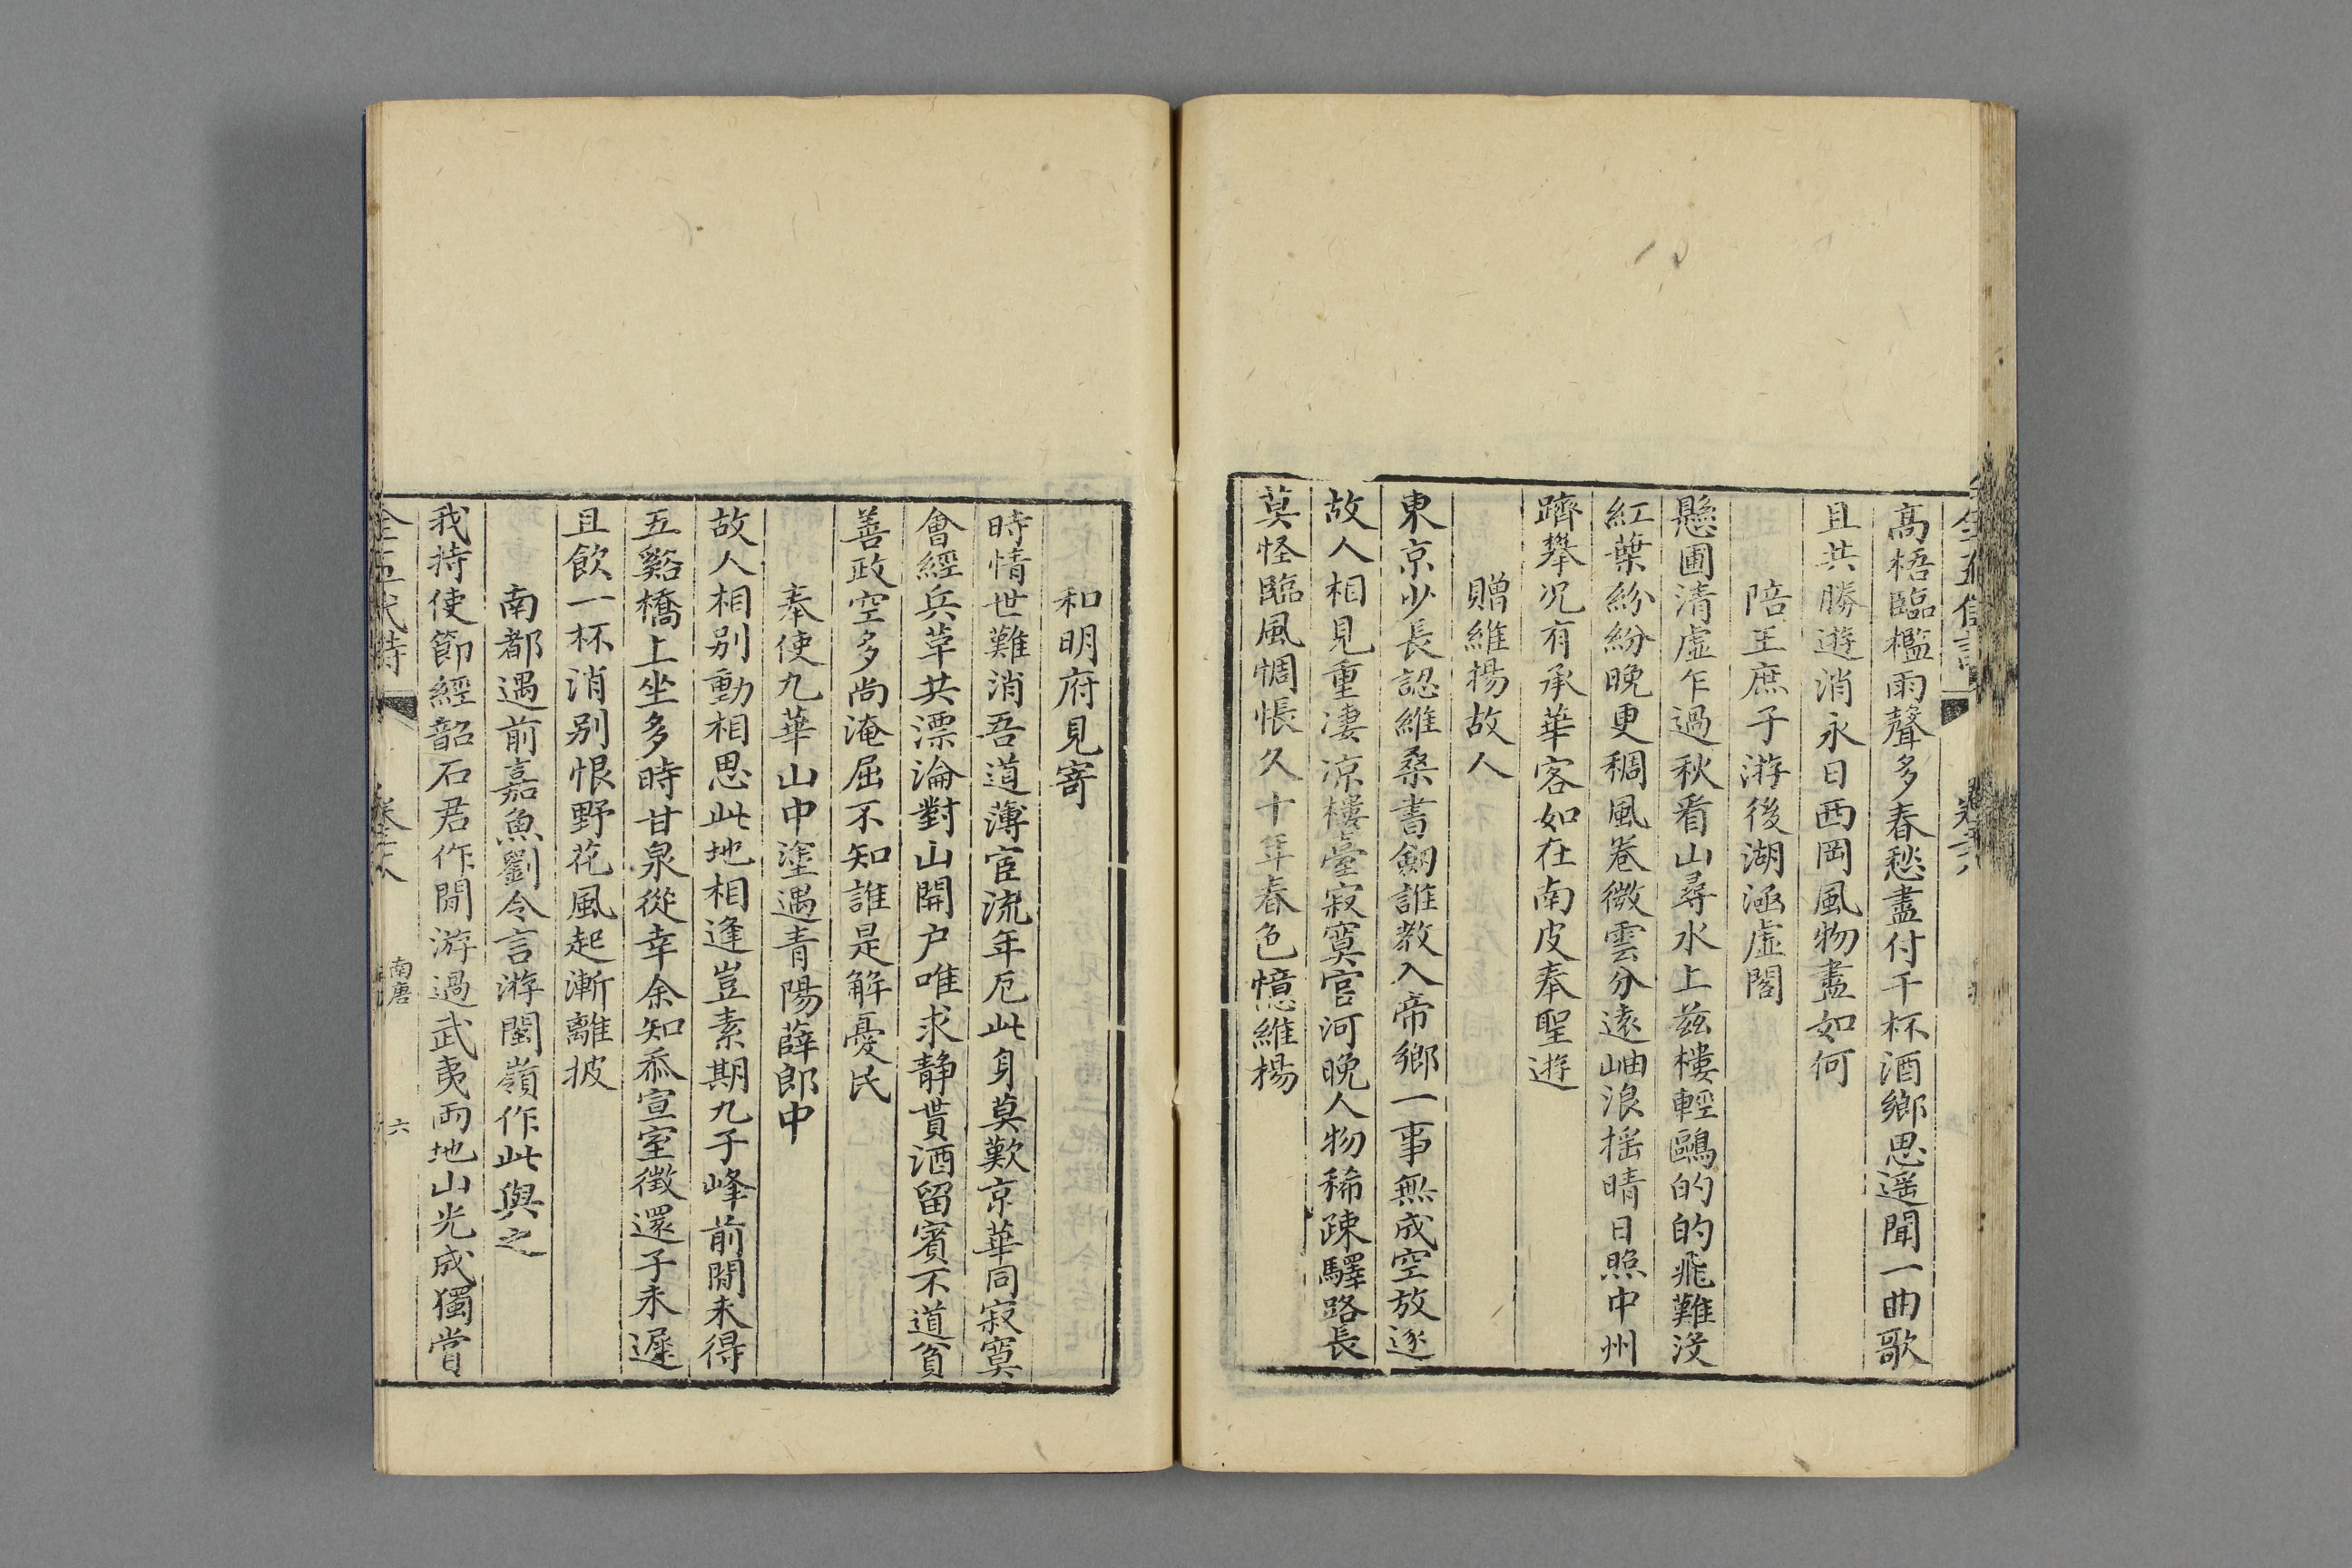 高梧臨檻雨聲多春愁盡付千杯酒鄉思遥聞一曲歌
且共勝遊消永日西岡風物盡如何
陪王庶子游後湖涵虛閣
懸圃清虛乍過秋看山尋水上兹樓輕鷗的的飛難没
紅葉紛紛晚更稠風卷微雲分遠岫浪摇晴日照中州
躋攀况有承華客如在南皮奉聖遊
贈維揚故人
東京少長認維桑書劒誰教入帝鄉一事無成空放逐
故人相見重凄凉樓臺寂寞官河晚人物稀疎驛路長
莫怪臨風惆悵久十年春色憶維楊
和明府見寄
時情世難消吾道薄宦流年厄此身莫歎京華同寂寞
會經兵革共漂淪對山開户唯求静貰酒留賓不道貧
善政空多尚淹屈不知誰是解憂民
奉使九華山中塗遇青陽薛郎中
故人相别動相思此地相逢豈素期九子峰前閒未得
五谿橋上坐多時甘泉從幸余知忝宣室徵還子未遲
且飲一杯消别恨野花風起漸離披
南都遇前嘉魚劉令言游閩嶺作此與之
我持使節經韶石君作閒游過武夷兩地山光成獨賞
全五代詩
南唐
六